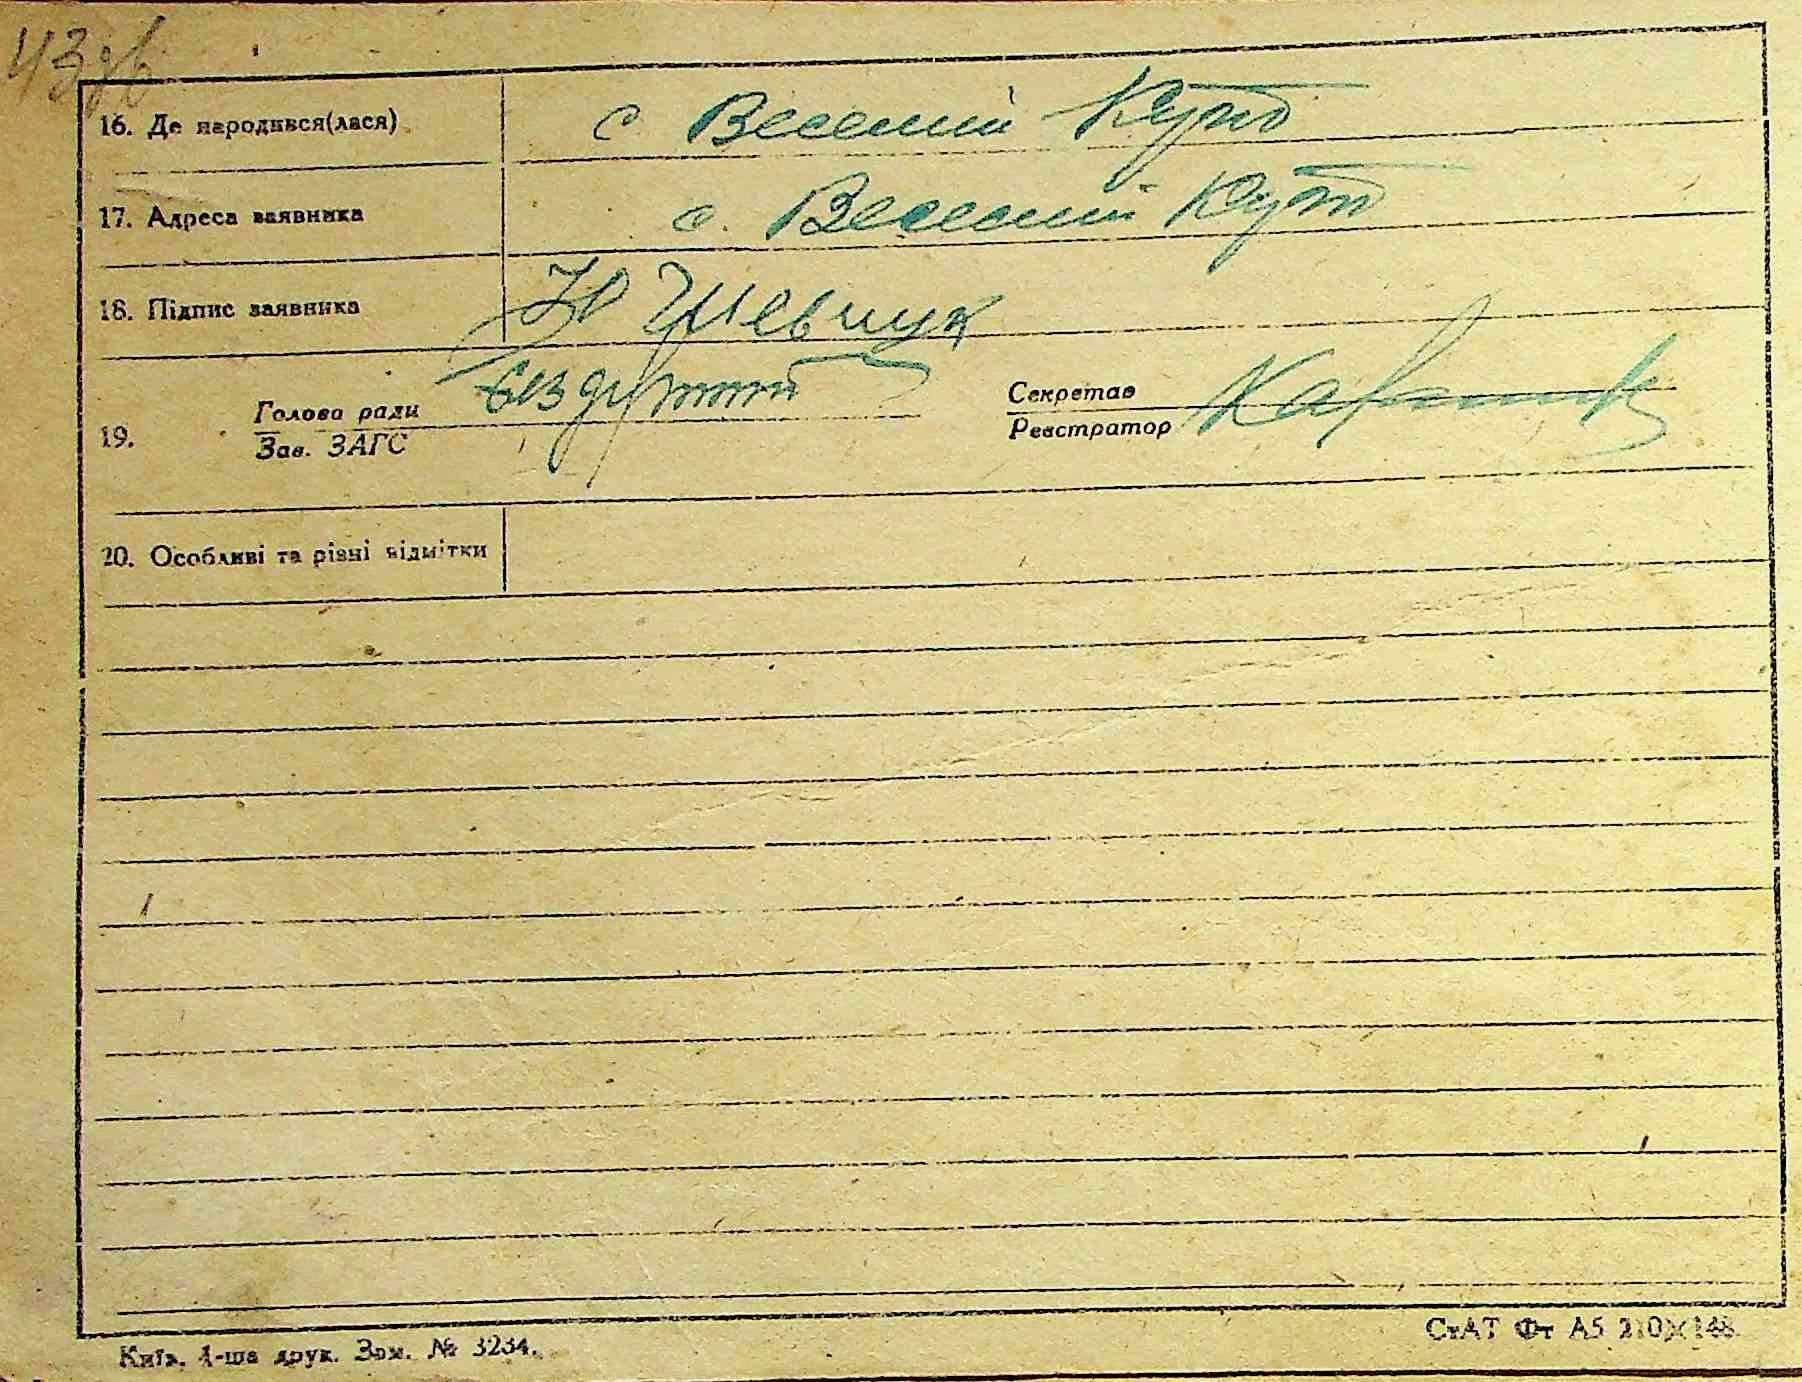 43 зв
16. Де народився(лася) с Веселий Кут
17. Адреса заявника с. Веселий Кут
18. Підпис заявника Шевчук
19. Голова ради
Зав. ЗАГС
Секретар
Реєстратор
20. Особливі та різні відмітки
Київ. 1-ша друк. Зам. № 3234.
СтАТ Фт А5 210×148.